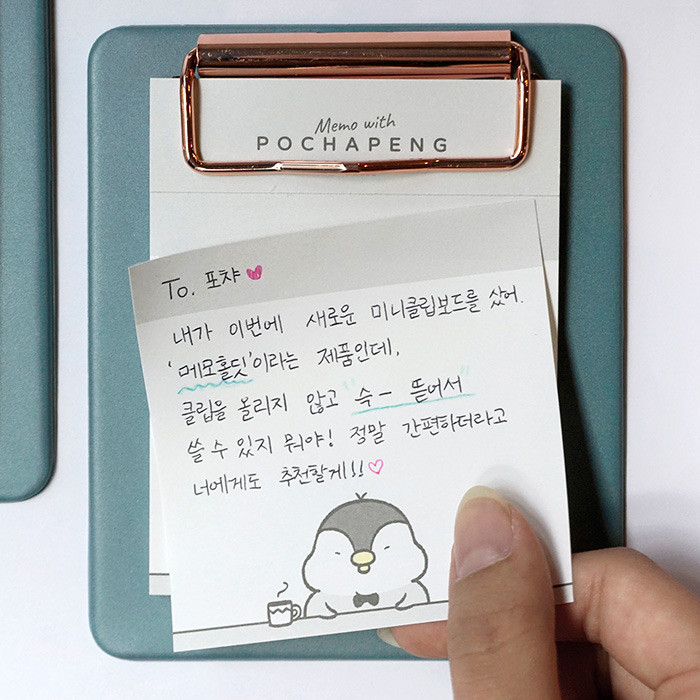 Memo with
POCHAPENG
To. 포챠
내가 이번에 새로운 미니클립보드를 샀어.
'메모홀딧'이라는 제품인데,
클립을 올리지 않고 "슥- 뜯어서"
쓸 수 있지 뭐야! 정말 간편하더라고
너에게도 추천할게!!